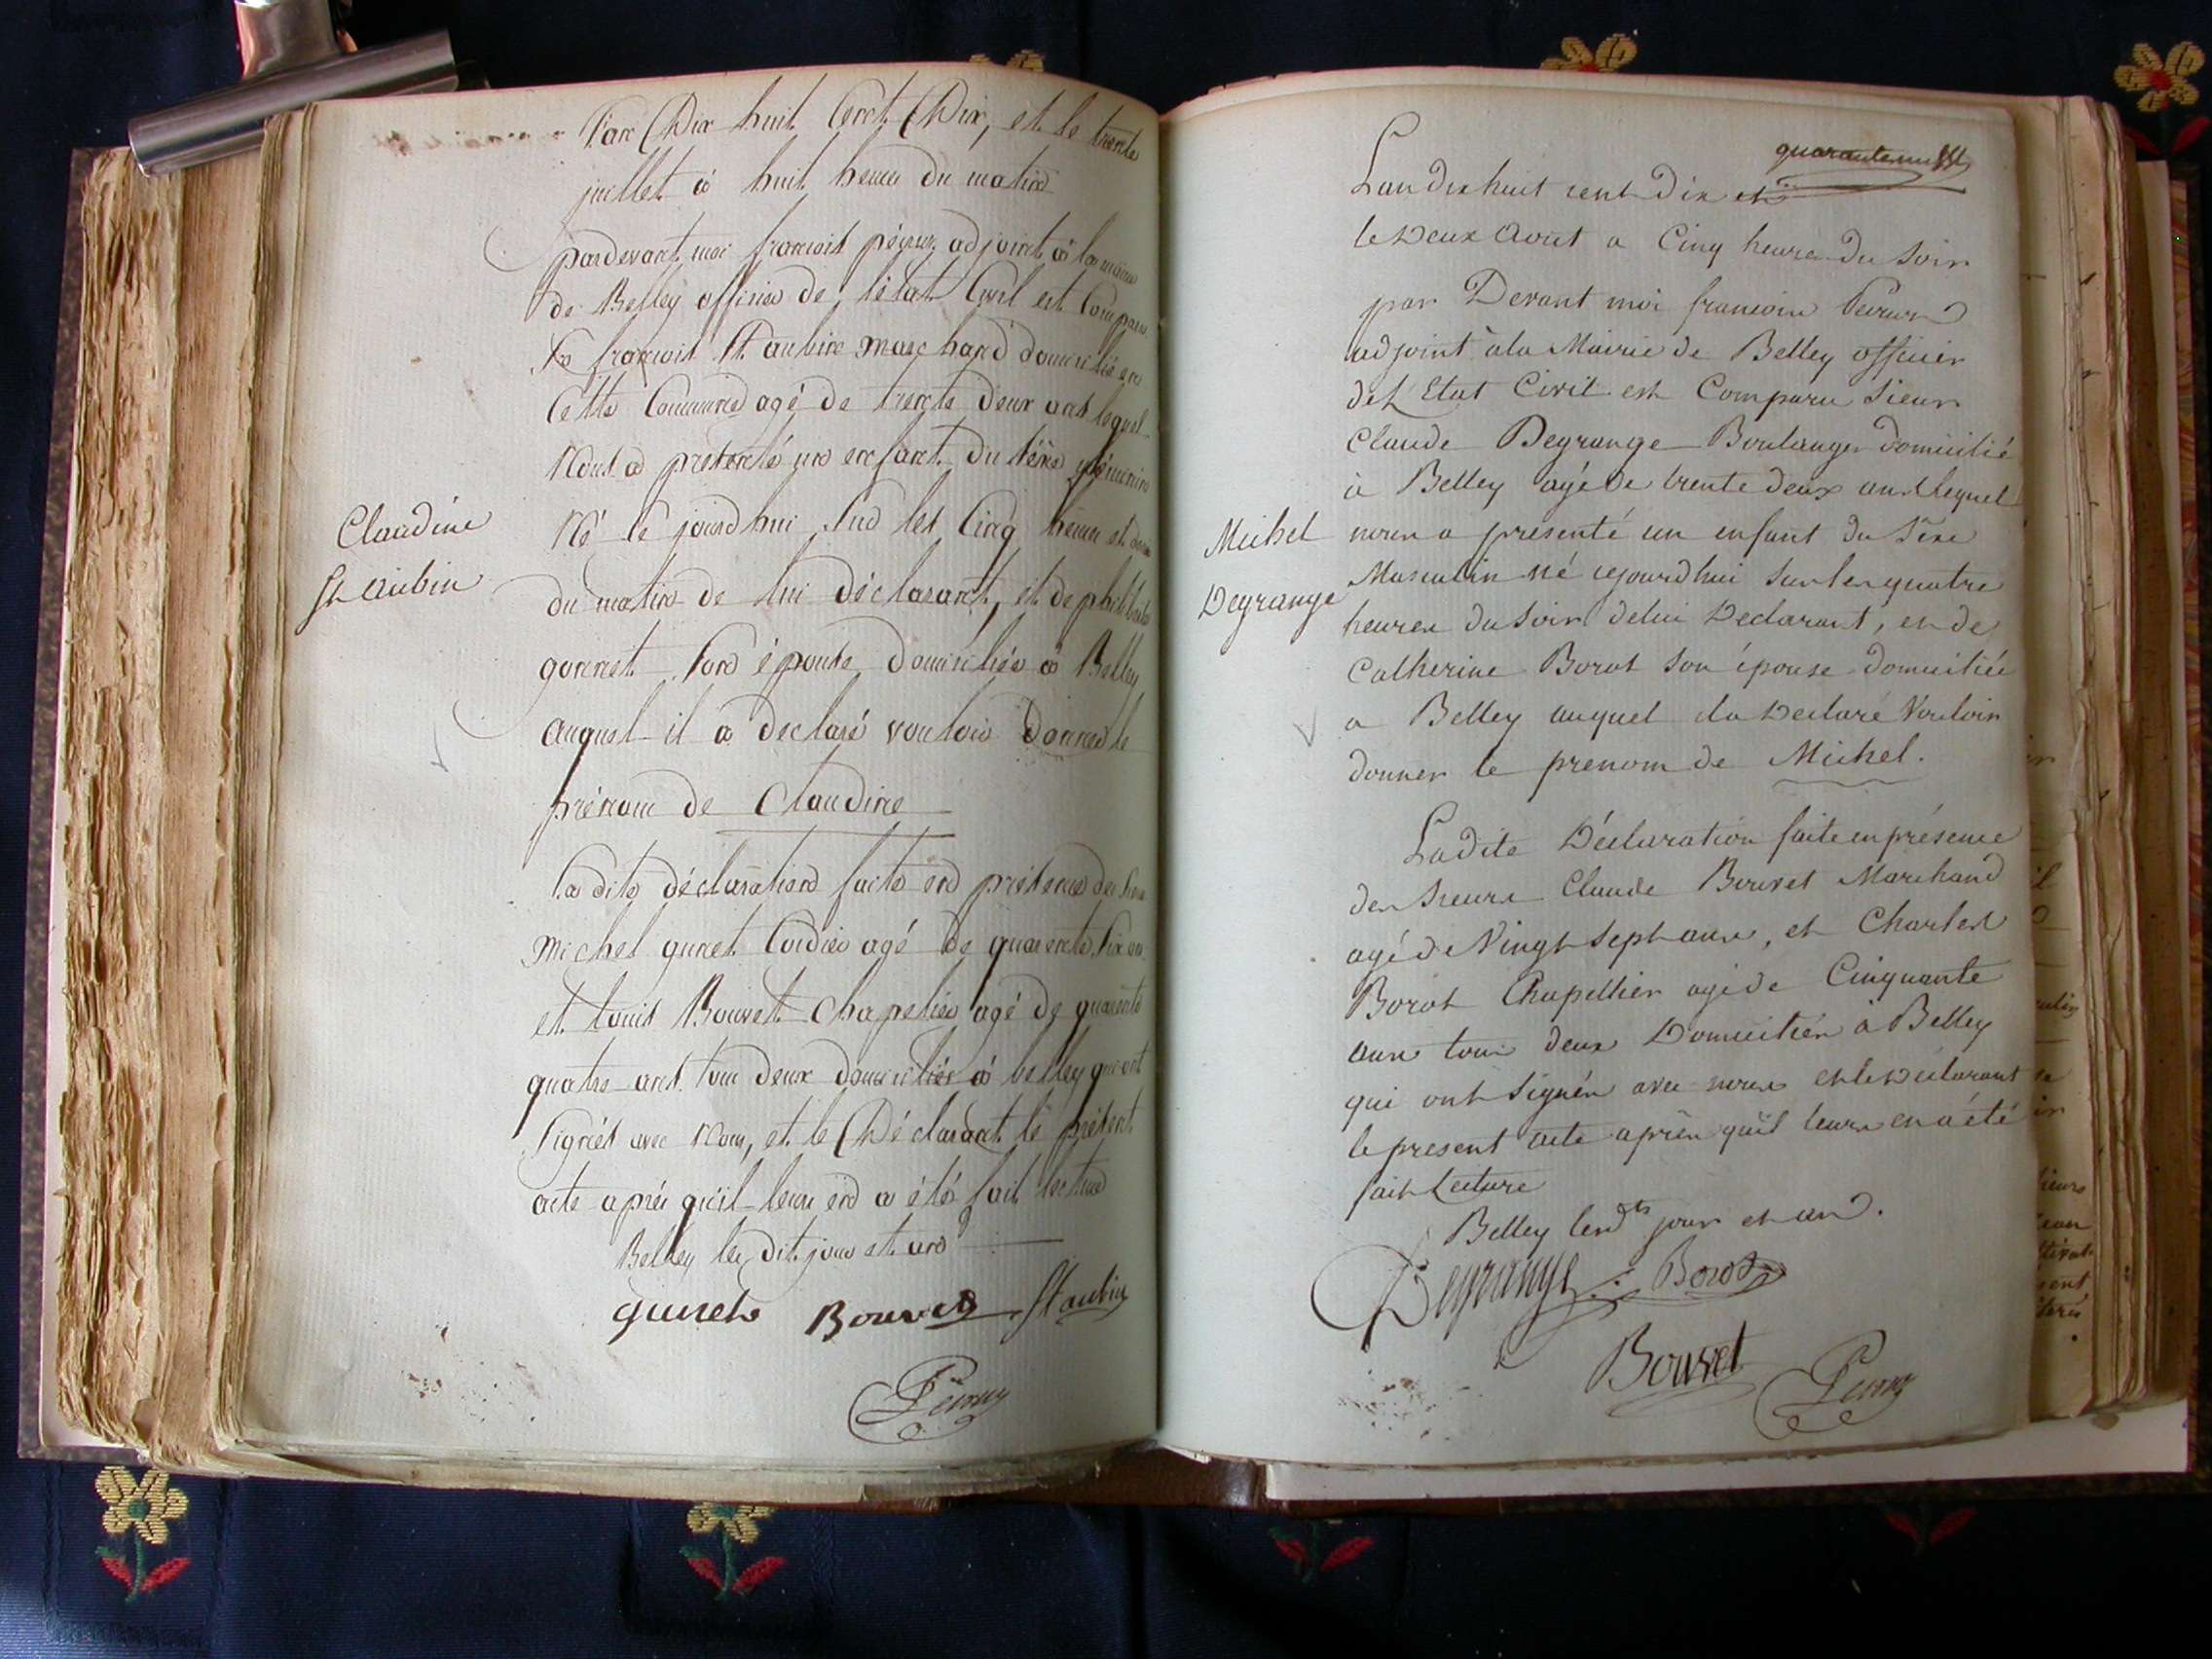 L'an Dix huit Cent Dix, et le trente
juillet à huit heures du matin
pardevant moi françois péysson adjoint à la mairie
de Belley officier de l'état Civil est Comparu
Sr françois St. aubin marchand domicilié en
Cette Commune agé de trente deux ans lequel
Nous a présenté un enfant du séxe féminin
Claudine
St aubin
Né ce jourd'hui sur les Cinq heures et demi
du matin de lui déclarant, et de philiberte
gonnet son épouse, domiciliés à Belley
auquel il a declaré vouloir donner le
prénom de Claudine
La dite déclaration faite en présence des Sieurs
michel guinet Cordier agé de quarente six ans
et Louis Bouvet Chapelier agé de quarente
quatre ans tous deux domiciliés à belley qui ont
signés avec Nous, et le Déclarant le présent
acte après qu'il leur en a été fait lecture
Belley les dit jour et an
guinet Bouvet St aubin
Lan dix huit cent Dix et
le Deux Aout a Cinq heures Du soir
par Devant moi francois
adjoint à la Mairie de Belley officier
de L'Etat Civil est Comparu Sieur
Claude Degrange Boulanger Domicilié
à Belley agé de trente deux ans lequel
Michel
Degrange
nous a présenté un enfant du séxe
Masculin né cejourd'hui sur les quatre
heures du soir de lui Declarant, et de
Catherine Borot son épouse Domiciliée
a Belley auquel il a Declaré Vouloir
donner le prenom de Michel.
Ladite Déclaration faite en présence
des Sieurs Claude Bouvet Marchand
agé de Vingt Sept ans, et Charles
Borot Chapellier agé de Cinquante
ans tous deux Domiciliés à Belley
qui ont Signés avec nous et le Déclarant
le present acte après qu'il leurs en a été
fait Lecture
Belley les dts jour et an.
Degrange Borot
Bouvet